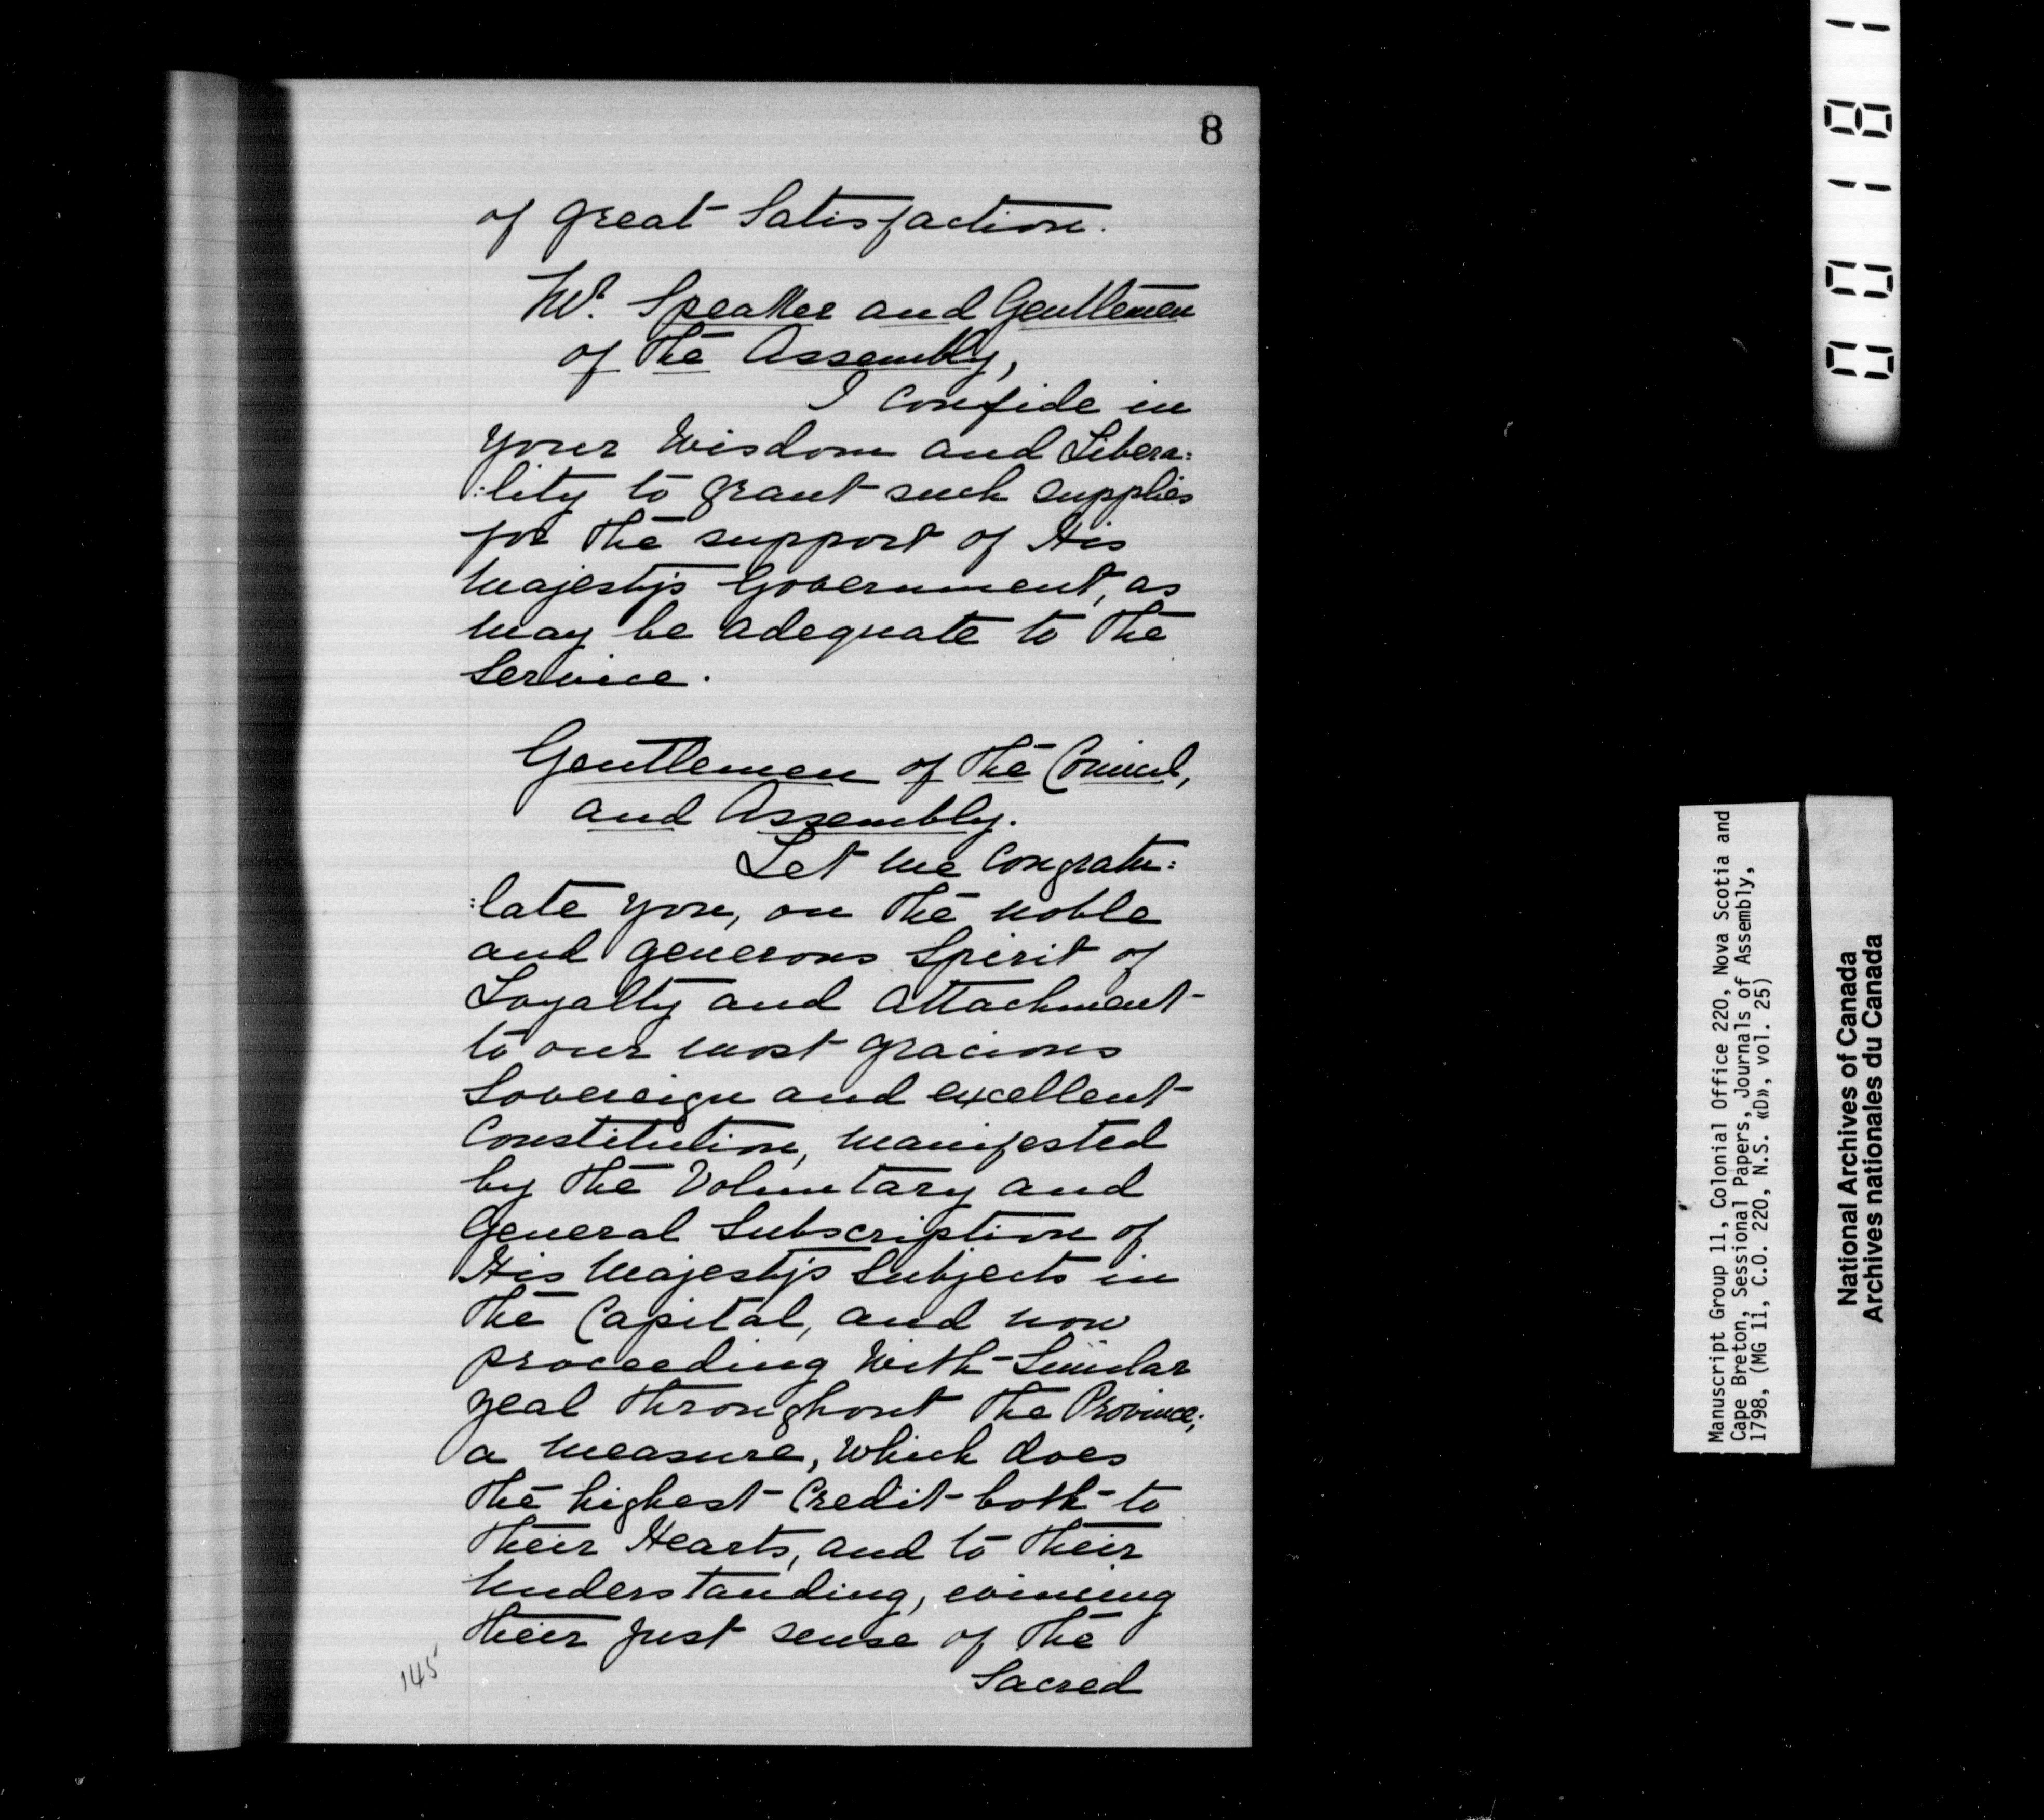 8
of great Satisfaction.
Mr. Speaker and Gentlemen
of the Assembly,
I confide in
your Wisdom and Libera=
:lity to grant such supplies
for the support of His
Majesty's Government, as
may be adequate to the
Service.
Gentlemen of the Council,
and Assembly.
Let me Congratu=
:late you, on the noble
and generous Spirit of
Loyalty and Attachment
to our most gracious
Sovereign and excellent
Constitution, manifested
by the Voluntary and
General Subscription of
His Majesty's Subjects in
the Capital, and now
proceeding with Similar
zeal throughout the Province;
a measure, which does
the highest Credit both to
their Hearts, and to their
Understanding, evincing
their just sense of the
Sacred
145
00181
Manuscript Group 11, Colonial Office 220, Nova Scotia and
Cape Breton, Sessional Papers, Journals of Assembly,
1798, (MG 11, C.O. 220, N.S. «D», vol. 25)
National Archives of Canada
Archives nationales du Canada